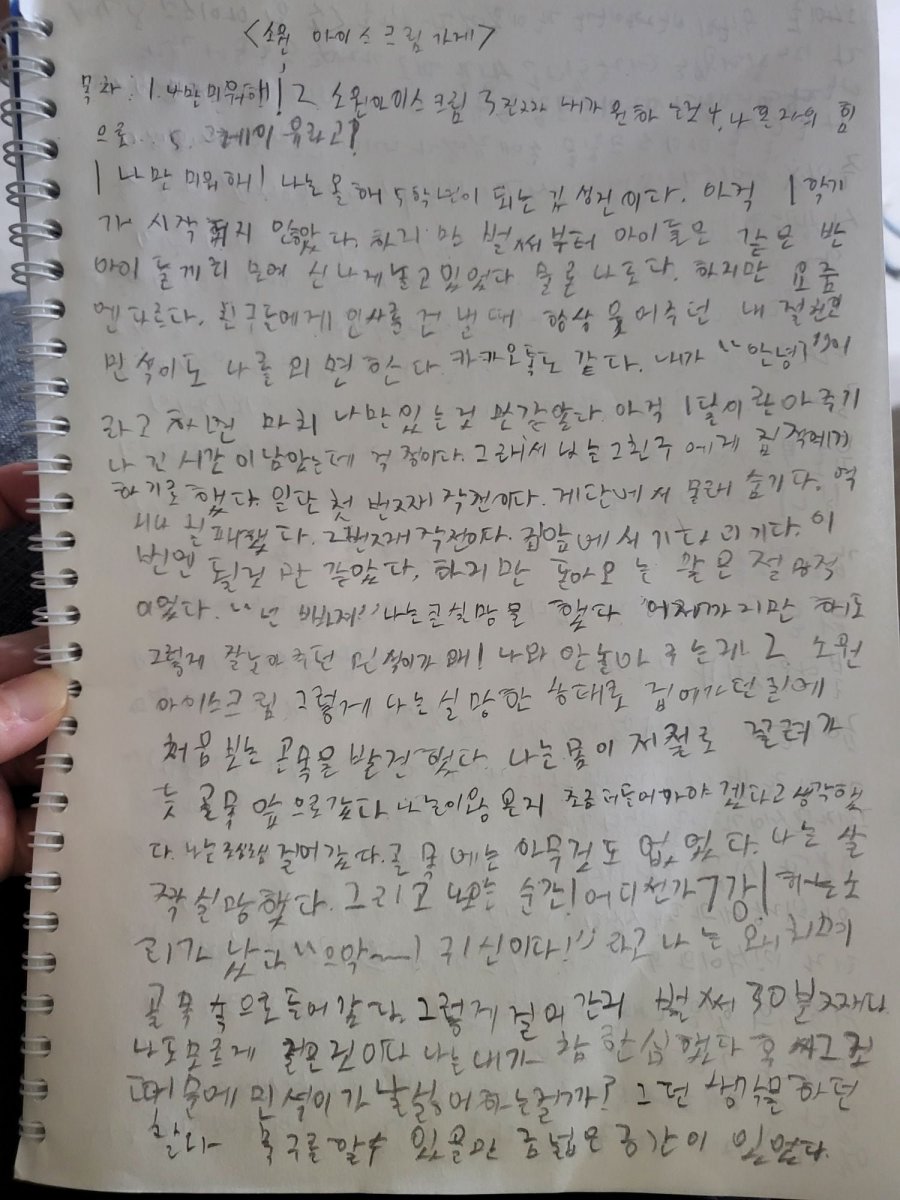 <소원 아이스크림 가게>
목차: 1. 나만 미워해! 2 소원아이스크림 3 진짜 내가 원하는것 4, 나 혼자의 힘
으로 5. 그게 이유라고?
1 나만 미워해! 나는 올해 5학년이 되는 김성진이다. 아직 1학기
가 시작되지 않았다. 하지만 벌써부터 아이들은 같은 반
아이들끼리 모여 신나게 놀고 있었다 물론 나도다. 하지만 요즘
엔 다르다. 친구들에게 인사를 건넬 때 항상 웃어주던 내 절친
민석이도 나를 외면한다. 카카오톡도 같다. 내가 "안녕?"이
라고 하면 마치 나만 있는것만 같았다. 아직 1달이란 아주 기
나긴 시간이 남았는데 걱정이다. 그래서 나는 그 친구에게 집착
하기로 했다. 일단 첫 번째 작전이다. 계단에서 몰래 숨기다. 역
시나 실패했다. 2번째 작전이다. 집앞에서 기다리기다. 이
번엔 될것만 같았다. 하지만 돌아오는 말은 절망적
이었다. "넌 빠져" 나는 큰 실망을 했다 어제까지만 해도
그렇게 잘 놀아주던 민석이가 왜! 나와 안 놀아 주는데! 2 소원
아이스크림 그렇게 나는 실망한 상태로 집에 가던 길에
처음 보는 골목을 발견했다. 나는 몸이 저절로 끌려가
듯 골목 앞으로 갔다 나는 이왕 온거 조금 더 들어가야겠다고 생각했
다. 나는 걸어갔다. 골목에는 아무것도 없었다. 나는 살
짝 실망했다. 그리고 나오는 순간! 어디선가 쿵! 하는 소
리가 났다 "으악~~! 귀신이다!" 라고 나는 외치며
골목 속으로 들어갔다. 그렇게 걸어간지 벌써 30분째다
나도 모르게 걸은것이다 나는 내가 참 한심했다 혹시 그것
때문에 민석이가 날 싫어하는걸까? 그런 생각을 하던
찰나 축구를 할수 있을만큼 넓은 공간이 있었다.